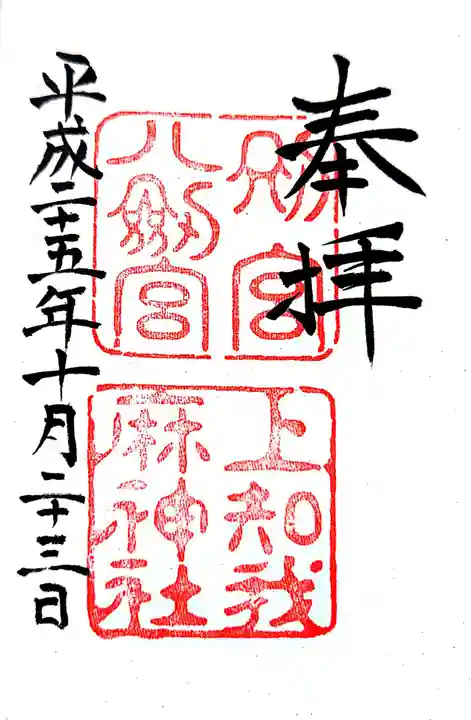 奉拝
別宮
八剱宮
上知我
麻神社
平成二十五年十月二十三日